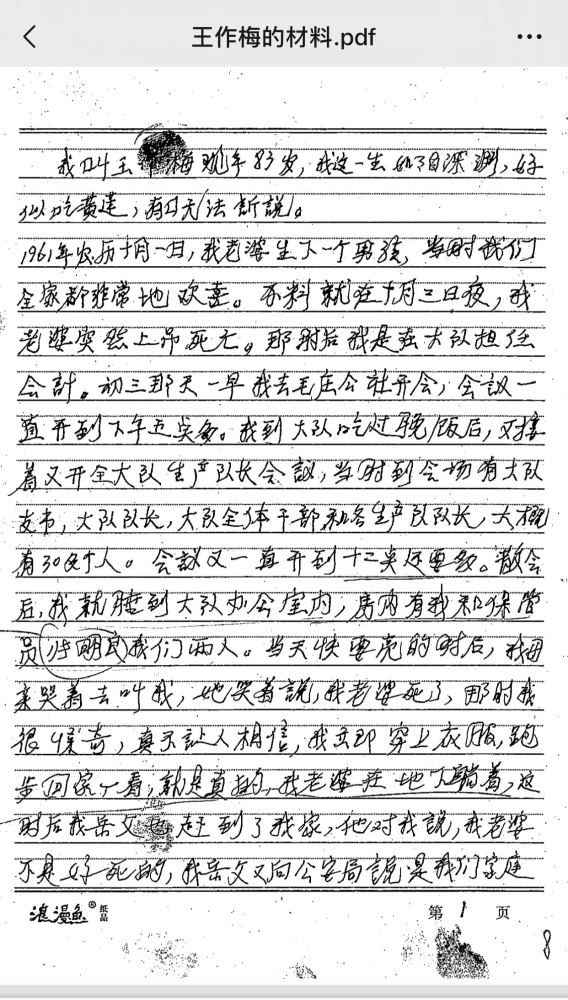 王作梅的材料.pdf
我叫王作梅现年83岁，我这一生如同深渊，好
似吃黄莲，有口无法诉說。
1961年农历十月一日，我老婆生下一个男孩，当时我们
全家都非常地欢喜。不料就在十月三日夜，我
老婆突然上吊死亡。那时后我是在大队担任
会計。初三那天一早我去毛庄公社开会，会议一
直开到下午五点多。我到大队吃过晚饭后，又接
着又开全大队生产队长会議，当时到会场有大队
支书，大队队长，大队全体干部和各生产队队长，大概
有30多个人。会议又一直开到十二点还要多。散会
后，我就睡到大队办公室内，房内有我和保管
员 明良我们两人。当天快要亮的时后，我母
亲哭着去叫我，她哭着說，我老婆死了，那时我
很惊奇，真不让人相信，我立即穿上衣服，跑
步回家一看，就是真的，我老婆在地下躺着，这
时后我岳父也赶到了我家，他对我說，我老婆
不是好死的，我岳父又向公安局說是我们家庭
浪漫鱼®纸品
第 1 页
8